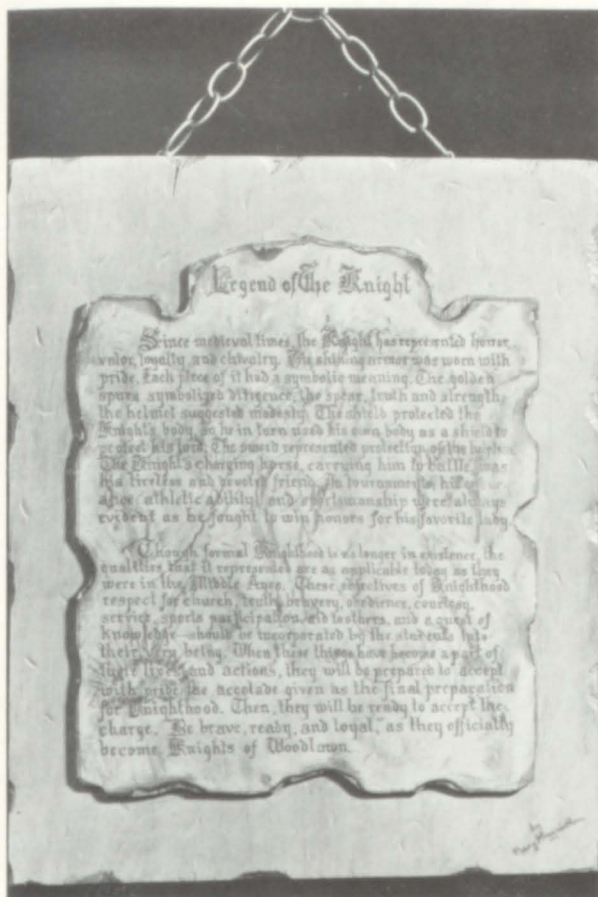 Legend of The Knight
Since medieval times, the Knight has represented honor,
valor, loyalty, and chivalry. His shining armor was worn with
pride. Each piece of it had a symbolic meaning. The golden
spurs symbolized diligence; the spear, truth and strength;
the helmet suggested modesty. The shield protected the
Knight's body, so he in turn used his own body as a shield to
protect his lord. The sword represented protection of the
The Knight's charging horse, carrying him to battle, was
his tireless and devoted friend. In tournaments, his
athletic ability, and sportsmanship were always
evident as he fought to win honors for his favorite lady.
Though formal Knighthood is no longer in existence, the
qualities that it represented are as applicable today as they
were in the Middle Ages. These objectives of Knighthood
respect for church, truth, bravery, obedience, courtesy,
service, sports participation, aid to others, and a quest of
knowledge should be incorporated by the students into
their very being. When these things have become a part of
their lives and actions, they will be prepared to accept
with pride the accolade given as the final preparation
for Knighthood. Then, they will be ready to accept the
charge, "Be brave, ready, and loyal," as they officially
become Knights of Woodlawn.
by